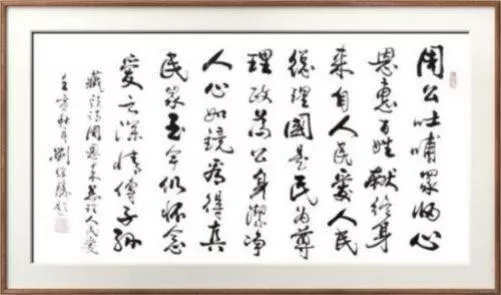 周公吐哺眾归心
恩惠百姓献终身
来自人民愛人民
總理國是民为尊
理政為公身潔净
人心如镜為得真
民众至今仍怀念
愛之深情傳子孫
藏头诗周恩来总理人民爱
壬寅秋月劉